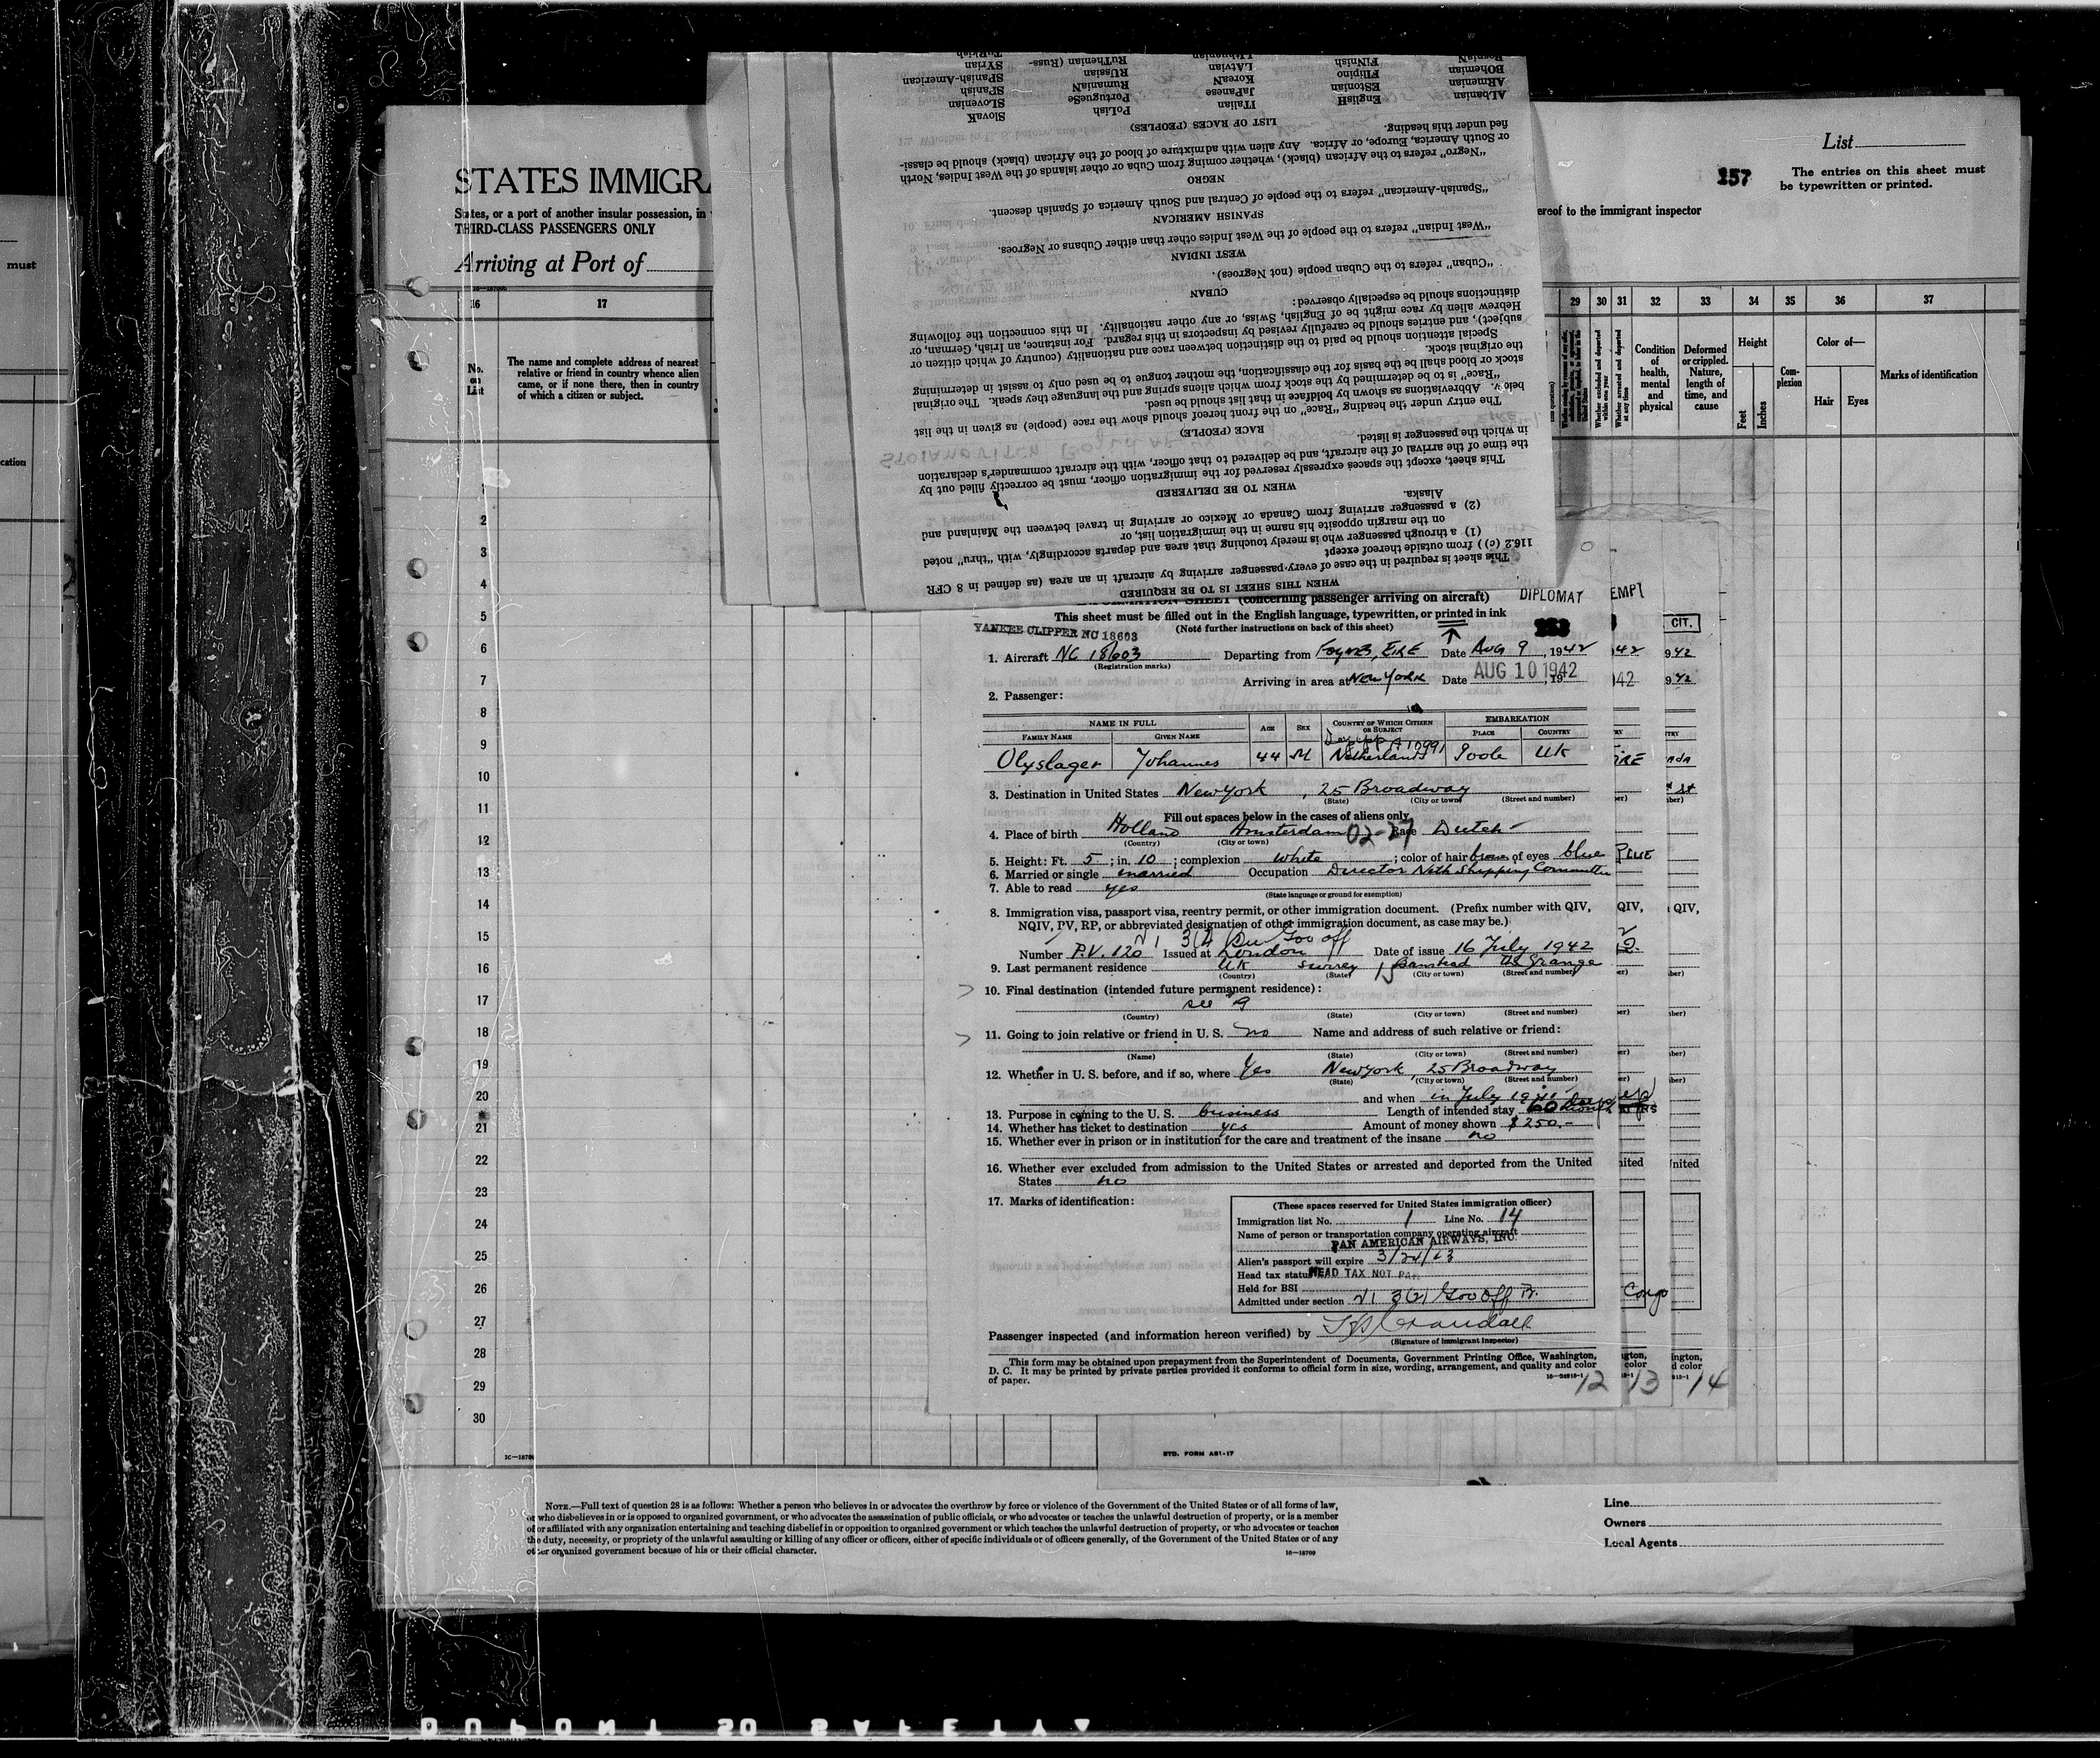 must
cation
STATES IMMIGRA
States, or a port of another insular possession, in
THIRD-CLASS PASSENGERS ONLY
Arriving at Port of
List
157
The entries on this sheet must
be typewritten or printed.
ereof to the immigrant inspector
16 17
No.
on
List
The name and complete address of nearest
relative or friend in country whence alien
came, or if none there, then in country
of which a citizen or subject.
29 30 31 32 33 34 35 36 37
Whether excluded and deported within one year
Whether arrested and deported at any time
Condition
of
health,
mental
and
physical
Deformed
or crippled.
Nature,
length of
time, and
cause
Height
Feet
Inches
Com-
plexion
Color of—
Hair
Eyes
Marks of identification
1
2
3
4
5
6
7
8
9
10
11
12
13
14
15
16
17
18
19
20
21
22
23
24
25
26
27
28
29
30
WHEN THIS SHEET IS TO BE REQUIRED
This sheet is required in the case of every passenger arriving by aircraft in an area (as defined in 8 CFR
116.2 (c)) from outside thereof except
(1) a through passenger who is merely touching that area and departs accordingly, with "thru" noted
on the margin opposite his name in the immigration list, or
(2) a passenger arriving from Canada or Mexico or arriving in travel between the Mainland and
Alaska.
WHEN TO BE DELIVERED
This sheet, except the spaces expressly reserved for the immigration officer, must be correctly filled out by
the time of the arrival of the aircraft, and be delivered to that officer, with the aircraft commander's declaration
in which the passenger is listed.
RACE (PEOPLE)
The entry under the heading "Race" on the front hereof should show the race (people) as given in the list
below. Abbreviations as shown by boldface in that list should be used.
"Race" is to be determined by the stock from which aliens spring and the language they speak. The original
stock or blood shall be the basis for the classification, the mother tongue to be used only to assist in determining
the original stock.
Special attention should be paid to the distinction between race and nationality (country of which citizen or
subject), and entries should be carefully revised by inspectors in this regard. For instance, an Irish, German, or
Hebrew alien by race might be of English, Swiss, or any other nationality. In this connection the following
distinctions should be especially observed:
CUBAN
"Cuban" refers to the Cuban people (not Negroes).
WEST INDIAN
"West Indian" refers to the people of the West Indies other than either Cubans or Negroes.
SPANISH AMERICAN
"Spanish-American" refers to the people of Central and South America of Spanish descent.
NEGRO
"Negro" refers to the African (black), whether coming from Cuba or other islands of the West Indies, North
or South America, Europe, or Africa. Any alien with admixture of blood of the African (black) should be classi-
fied under this heading.
LIST OF RACES (PEOPLES)
ALbanian ENglisH ITAlian PoLish SlovaK
ARmenian EStonian JaPanese PortugueSe SLOvenian
BOhemian FIlipino KoreaN RumaniaN SPaniSh
BosniaN FINniSh LAtvian RUSsian SPaniSh-American
Lithuanian RuThenian (Russ- SYrian
TuRkish
INFORMATION SHEET (concerning passenger arriving on aircraft)
DIPLOMAT
EMPT
This sheet must be filled out in the English language, typewritten, or printed in ink
(Note further instructions on back of this sheet)
YANKEE CLIPPER NC 18603
CIT.
1. Aircraft NC 18603 Departing from Foynes, EIRE Date Aug 9, 1942
(Registration marks)
Arriving in area at New York Date AUG 10 1942
2. Passenger:
NAME IN FULL AGE SEX COUNTRY OF WHICH CITIZEN OR SUBJECT EMBARKATION
FAMILY NAME GIVEN NAME PLACE COUNTRY
Olyslager Johannes 44 M Netherlands Poole UK
3. Destination in United States New York, 25 Broadway
(State) (City or town) (Street and number)
Fill out spaces below in the cases of aliens only
4. Place of birth Holland Amsterdam 02-27 Race Dutch
(Country) (City or town)
5. Height: Ft. 5; in. 10; complexion white; color of hair brown of eyes blue
6. Married or single married Occupation Director Neth Shipping Committee
7. Able to read yes
(State language or ground for exemption)
8. Immigration visa, passport visa, reentry permit, or other immigration document. (Prefix number with QIV,
NQIV, PV, RP, or abbreviated designation of other immigration document, as case may be.)
Number P.V. 120 Issued at London Date of issue 16 July 1942
9. Last permanent residence UK Surrey Banstead The Grange
(Country) (State) (City or town) (Street and number)
10. Final destination (intended future permanent residence):
see 9
(Country) (State) (City or town) (Street and number)
11. Going to join relative or friend in U. S. no Name and address of such relative or friend:
(Name) (State) (City or town) (Street and number)
12. Whether in U. S. before, and if so, where Yes New York, 25 Broadway
(State) (City or town) (Street and number)
and when in July 1941
13. Purpose in coming to the U. S. business Length of intended stay 60
14. Whether has ticket to destination yes Amount of money shown $250.-
15. Whether ever in prison or in institution for the care and treatment of the insane no
16. Whether ever excluded from admission to the United States or arrested and deported from the United
States no
17. Marks of identification:
(These spaces reserved for United States immigration officer)
Immigration list No. 1 Line No. 14
Name of person or transportation company operating aircraft
PAN AMERICAN AIRWAYS, INC.
Alien's passport will expire 3/24/43
Head tax status HEAD TAX NOT
Held for BSI
Admitted under section 3(2) Gov Off
Congo
Passenger inspected (and information hereon verified) by Crandall
(Signature of immigrant inspector)
This form may be obtained upon prepayment from the Superintendent of Documents, Government Printing Office, Washington,
D. C. It may be printed by private parties provided it conforms to official form in size, wording, arrangement, and quality and color
of paper.
12 13 14
STD. FORM A61-17
NOTE.—Full text of question 28 is as follows: Whether a person who believes in or advocates the overthrow by force or violence of the Government of the United States or of all forms of law,
or who disbelieves in or is opposed to organized government, or who advocates the assassination of public officials, or who advocates or teaches the unlawful destruction of property, or is a member
of or affiliated with any organization entertaining and teaching disbelief in or opposition to organized government or which teaches the unlawful destruction of property, or who advocates or teaches
the duty, necessity, or propriety of the unlawful assaulting or killing of any officer or officers, either of specific individuals or of officers generally, of the Government of the United States or of any
other organized government because of his or their official character.
16—18700
Line
Owners
Local Agents
DUPONT 20 SAFETY